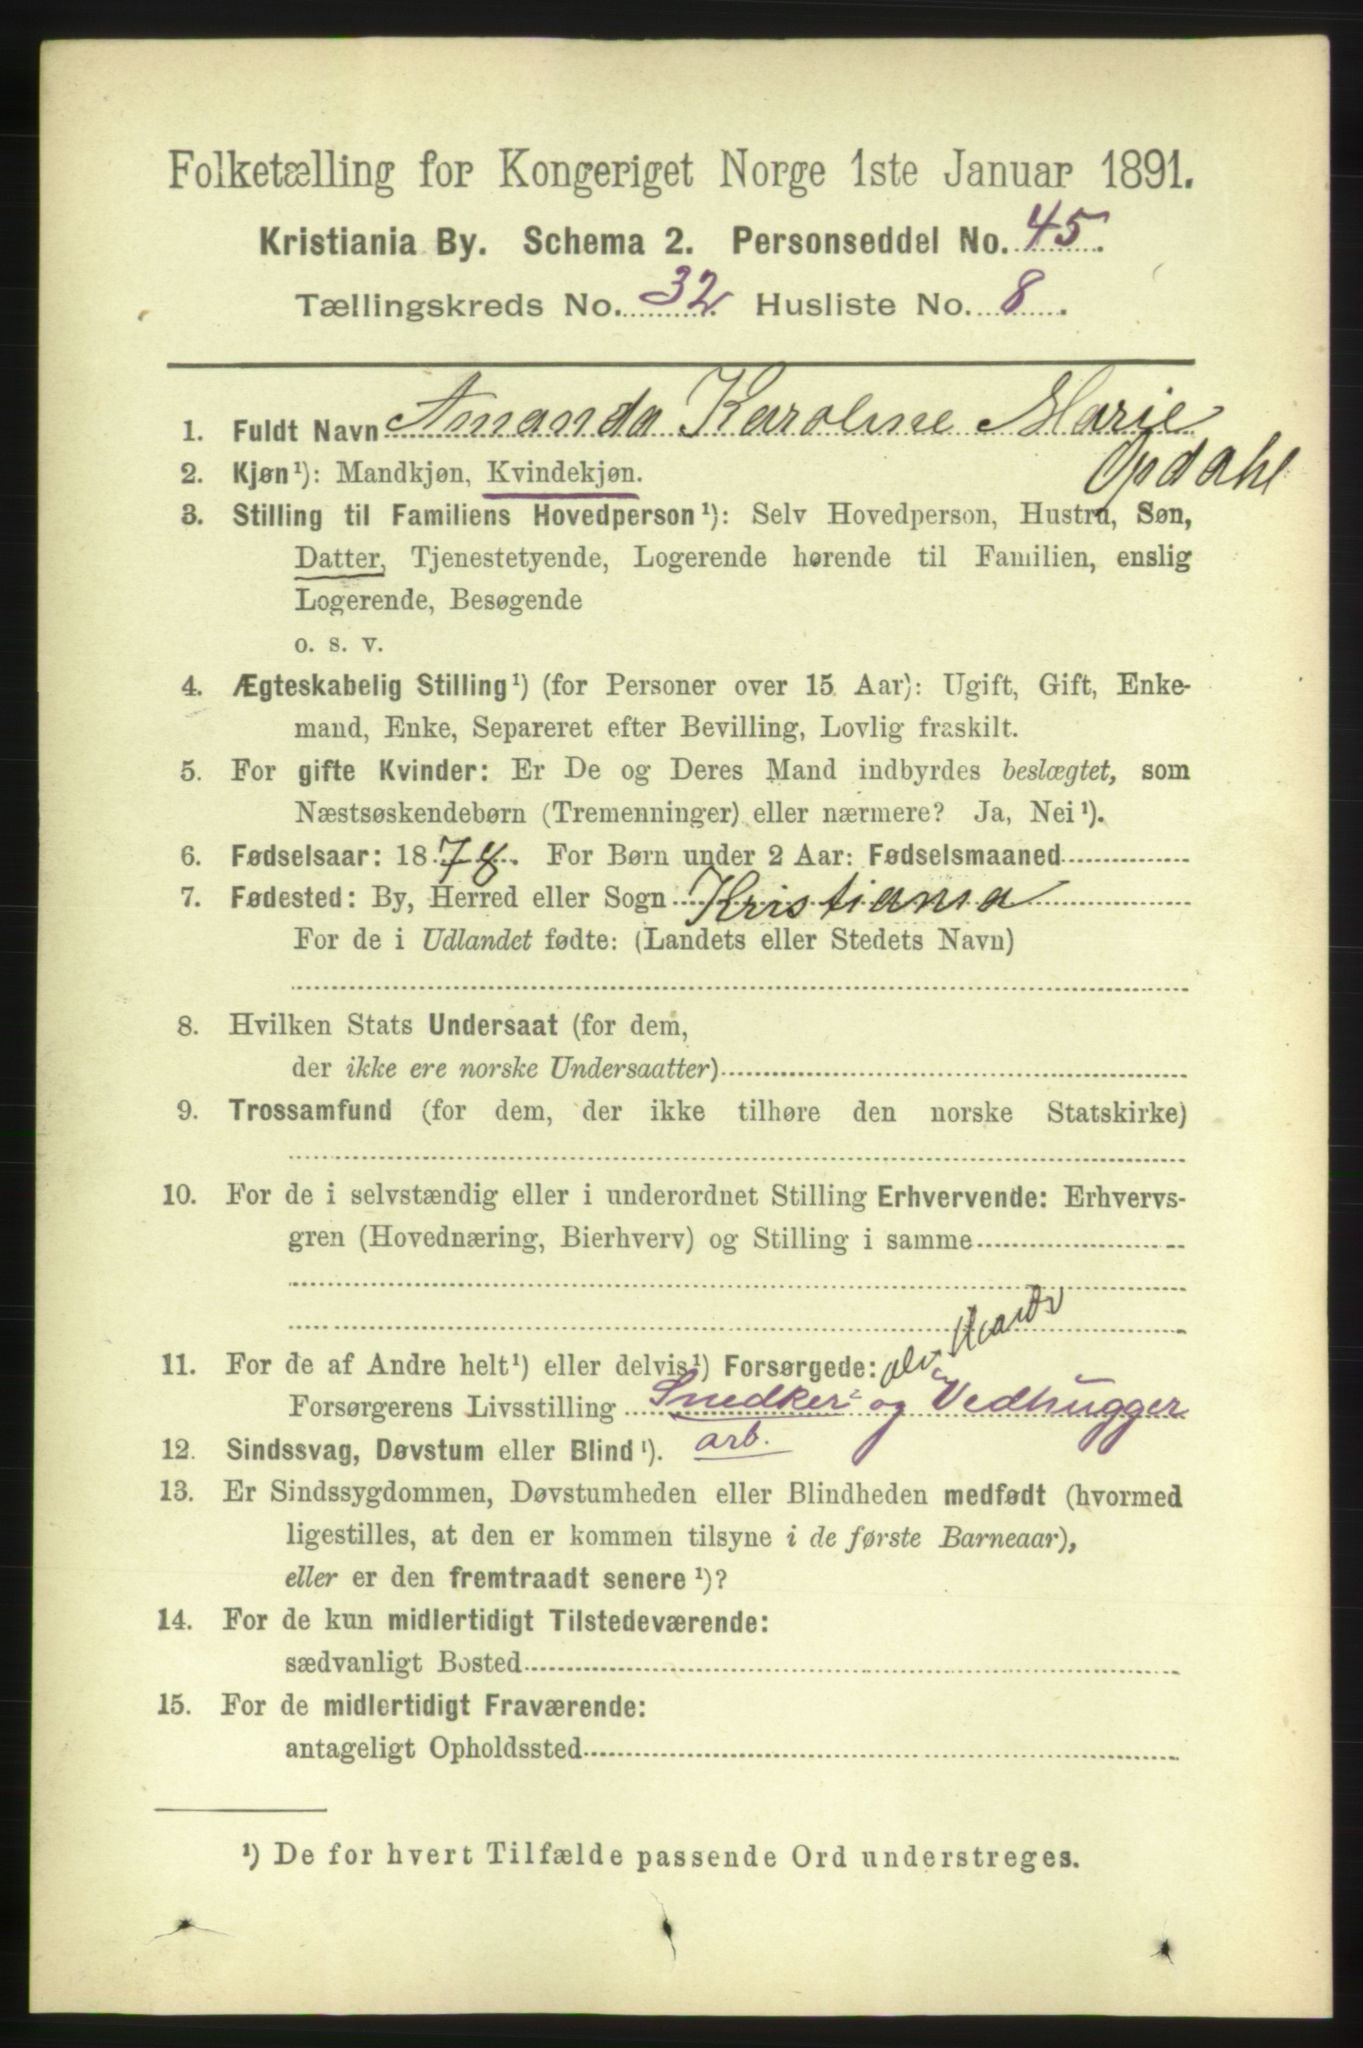 Folketælling for Kongeriget Norge 1ste Januar 1891.
Kristiania By. Schema 2. Personseddel No. 45.
Tællingskreds No. 32 Husliste No. 8.
1. Fuldt Navn Amanda Karoline Marie
Opdahl
2. Kjøn¹): Mandkjøn, Kvindekjøn.
3. Stilling til Familiens Hovedperson¹): Selv Hovedperson, Hustru, Søn,
Datter, Tjenestetyende, Logerende hørende til Familien, enslig
Logerende, Besøgende
o. s. v.
4. Ægteskabelig Stilling¹) (for Personer over 15 Aar): Ugift, Gift, Enke-
mand, Enke, Separeret efter Bevilling, Lovlig fraskilt.
5. For gifte Kvinder: Er De og Deres Mand indbyrdes beslægtet, som
Næstsøskendebørn (Tremenninger) eller nærmere? Ja, Nei¹).
6. Fødselsaar: 1878. For Børn under 2 Aar: Fødselsmaaned
7. Fødested: By, Herred eller Sogn Kristiania
For de i Udlandet fødte: (Landets eller Stedets Navn)
8. Hvilken Stats Undersaat (for dem,
der ikke ere norske Undersaatter)
9. Trossamfund (for dem, der ikke tilhøre den norske Statskirke)
10. For de i selvstændig eller i underordnet Stilling Erhvervende: Erhvervs-
gren (Hovednæring, Bierhverv) og Stilling i samme
11. For de af Andre helt¹) eller delvis¹) Forsørgede:
Forsørgerens Livsstilling Snedker og Vedhugger
arb.
12. Sindssvag, Døvstum eller Blind¹).
13. Er Sindssygdommen, Døvstumheden eller Blindheden medfødt (hvormed
ligestilles, at den er kommen tilsyne i de første Barneaar),
eller er den fremtraadt senere¹)?
14. For de kun midlertidigt Tilstedeværende:
sædvanligt Bosted
15. For de midlertidigt Fraværende:
antageligt Opholdssted
¹) De for hvert Tilfælde passende Ord understreges.